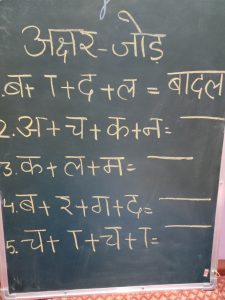 अक्षर-जोड़
1.ब+ा+द+ल = बादल
2.अ+च+क+न=
3.क+ल+म=
4.ब+र+ग+द=
5.च+ा+च+ा=